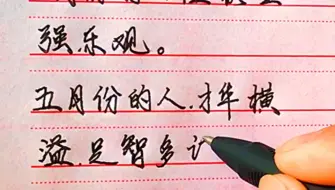 强乐观。
五月份的人.才华横
溢.足智多